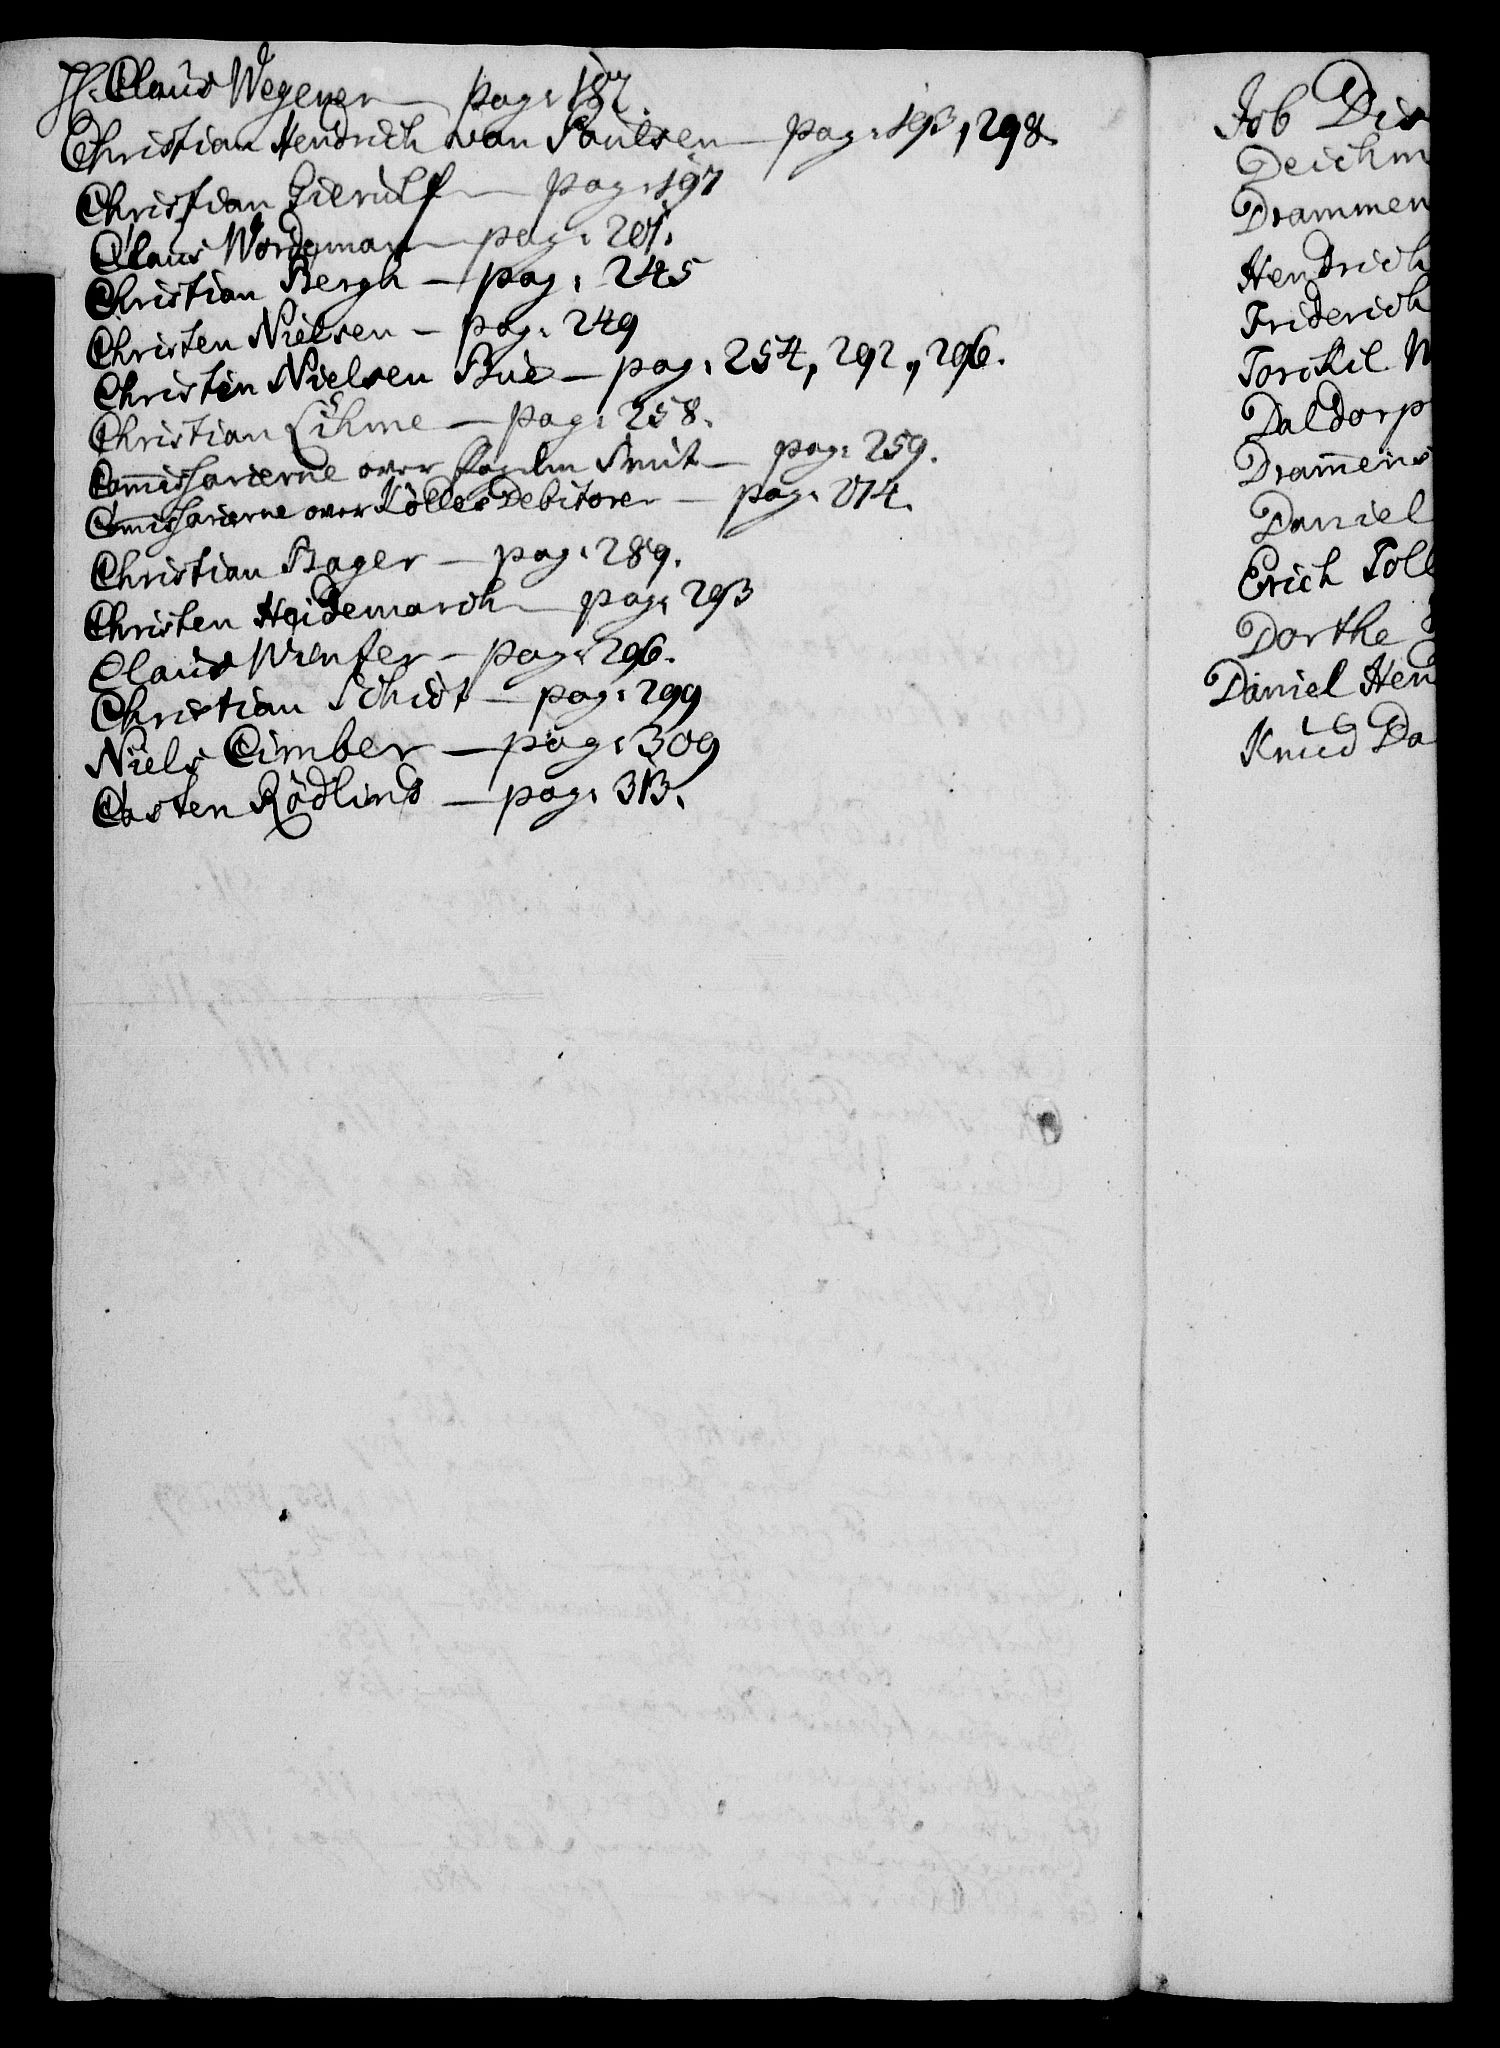 H. Claus Wegener — pag: 187.
Christian Hendrich von Paulsen — pag: 193, 298.
Christian Gierulf — pag: 197
Claus Wordeman — pag: 207.
Christian Bergh — pag: 245
Christen Nielsen — pag: 249
Christen Nielsen Bue — pag: 254, 292, 296.
Christian Lihme — pag: 258.
Com̅issarierne over Smit — pag: 259.
Com̅issarierne over Kölles Debitorer — pag: 274.
Christian Bager — pag: 289.
Christen Heidemarch — pag: 293
Claus Winter — pag: 296.
Christian Schidt — pag: 299
Niels Cimber — pag: 309
Casten Rödlins — pag: 313.
Job Dir
Deichm
Drammen
Hendrich
Friderich
Torkil
Daldorp
Dram̅ens
Daniel
Erich Toll
Dorthe
Daniel Hen
Knud Da